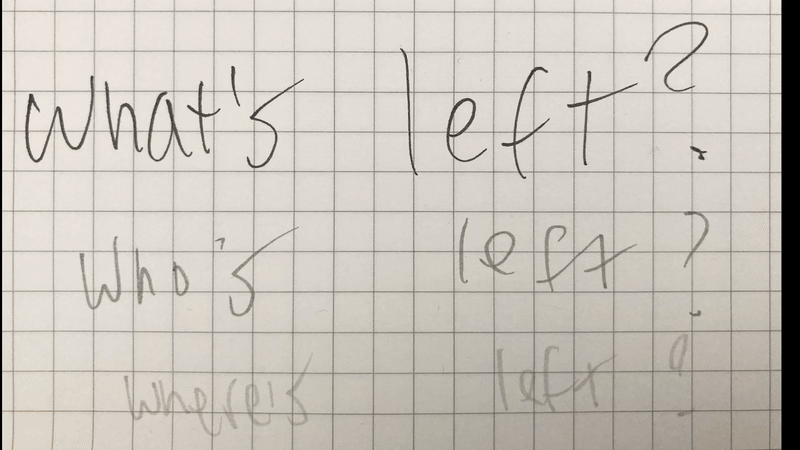 what's left?
who's left?
where's left?